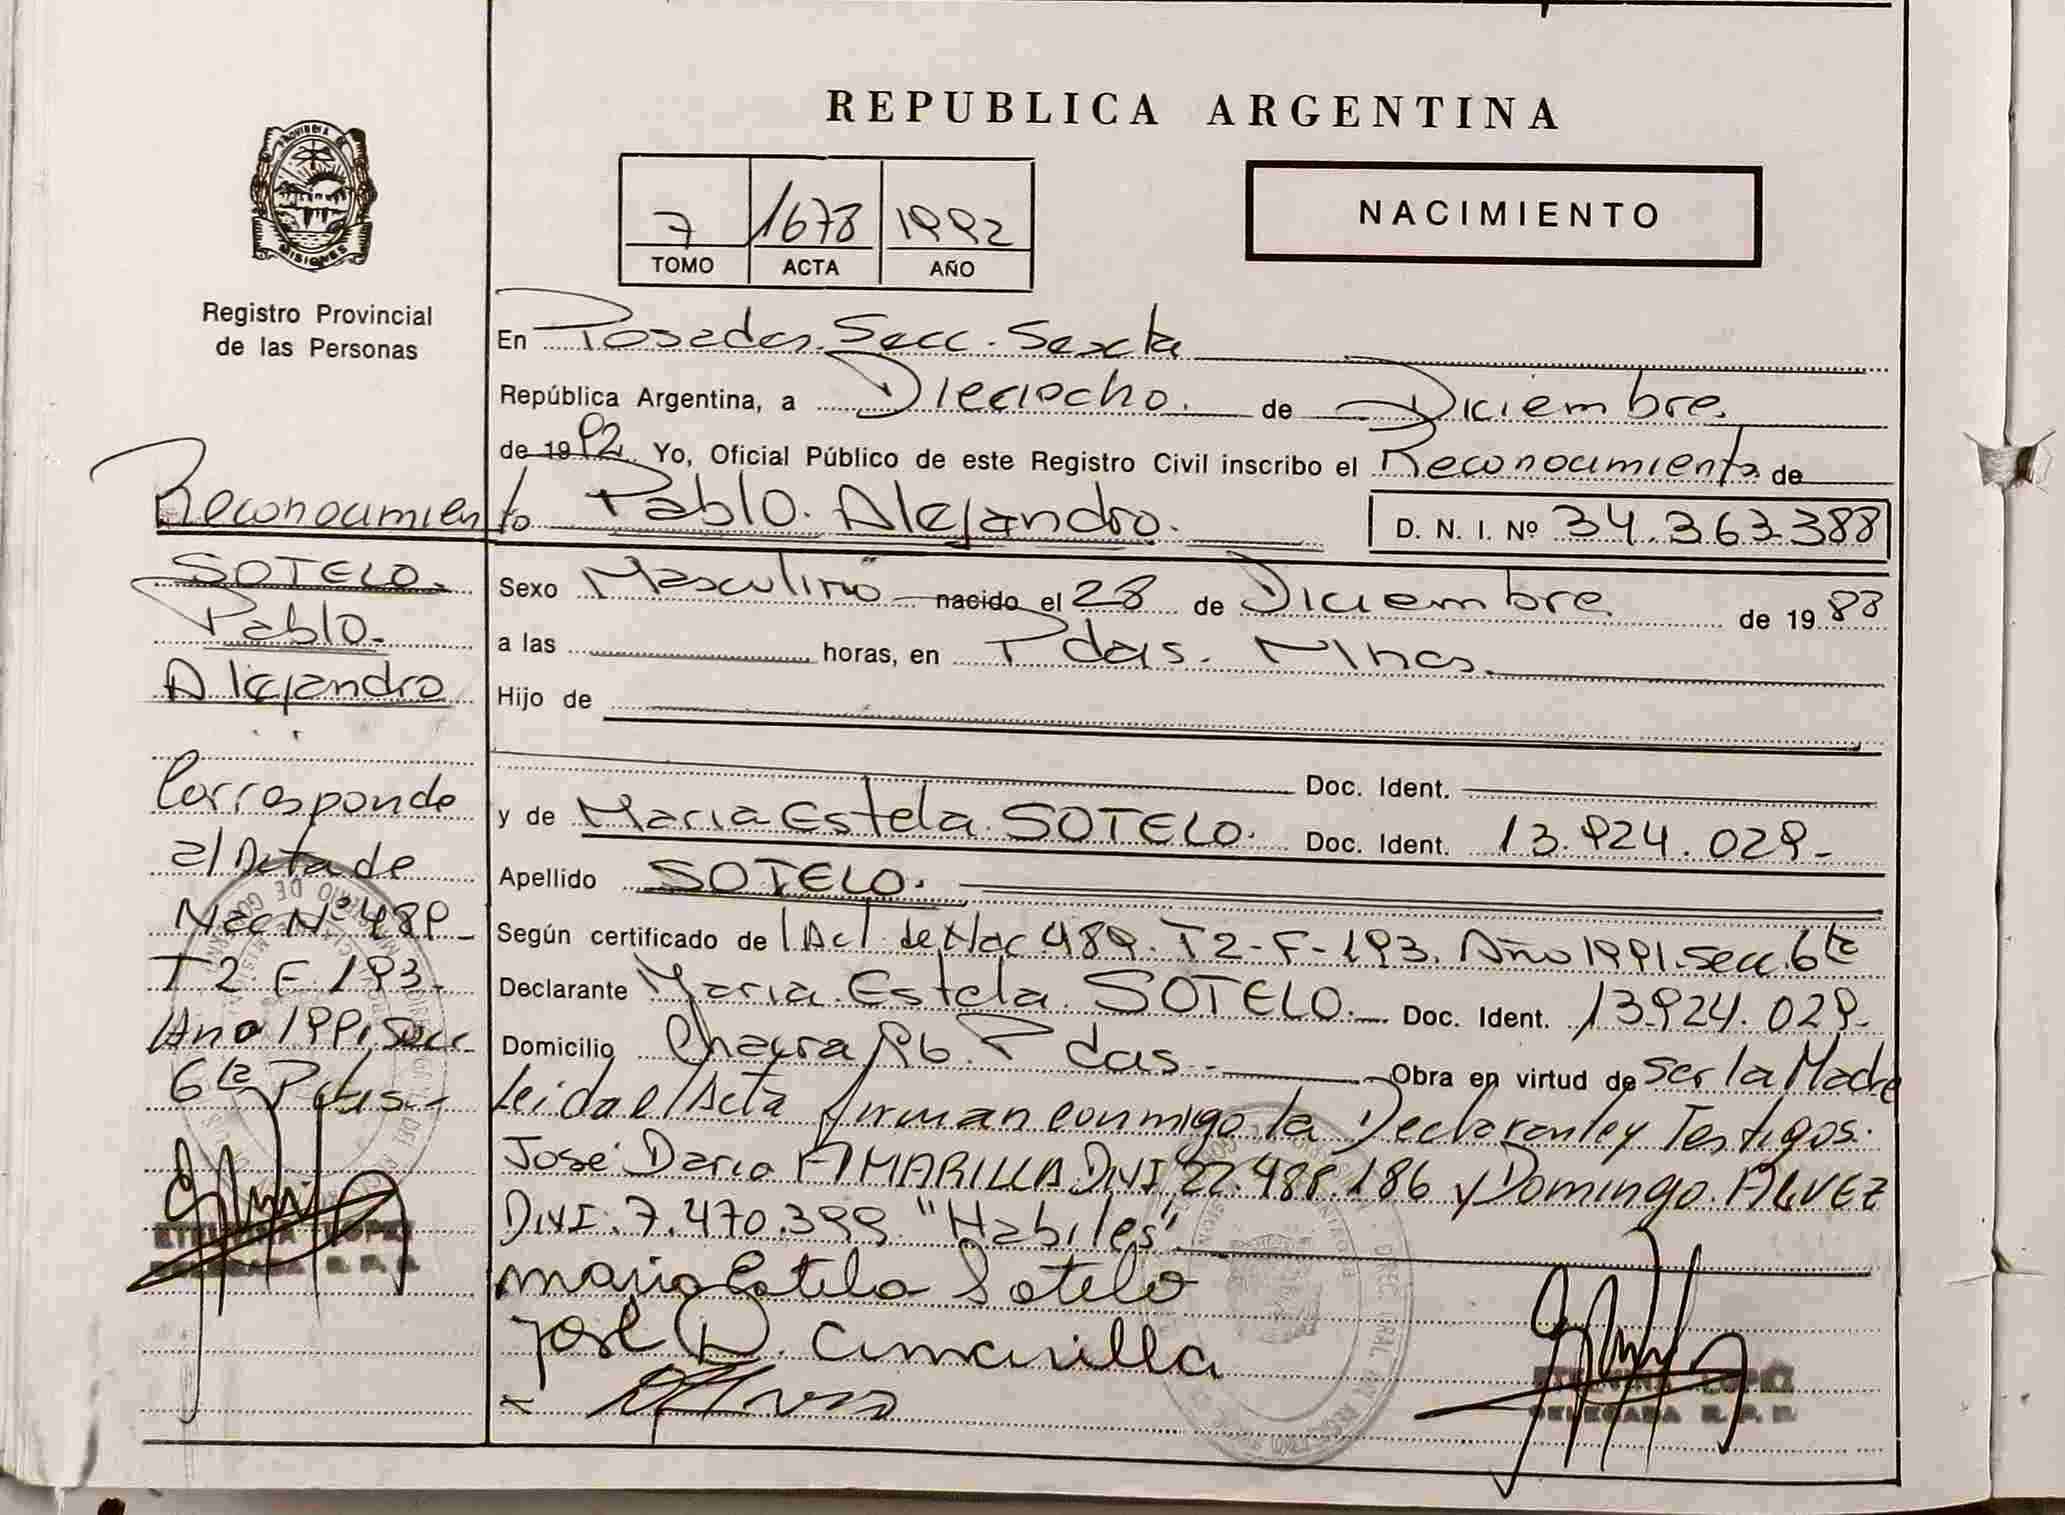 REPUBLICA ARGENTINA
PROVINCIA DE
MISIONES
Registro Provincial
de las Personas
7 1678 1992
TOMO ACTA AÑO
NACIMIENTO
En Posadas. Secc. Sexta
República Argentina, a Dieciocho. de Diciembre.
de 1992. Yo, Oficial Público de este Registro Civil inscribo el Reconocimiento de
Pablo. Alejandro.
D. N. I. Nº 34.363.388
Sexo Masculino nacido el 28 de Diciembre de 1988
a las horas, en Pdas. Mnes.
Hijo de
Doc. Ident.
y de Maria Estela. SOTELO. Doc. Ident. 13.924.029-
Apellido SOTELO.
Según certificado de Act. de Nac 489. T2-F-193. Año 1991. secc. 6ta
Declarante Maria. Estela. SOTELO. Doc. Ident. 13.924.029-
Domicilio Chacra Pdas. Obra en virtud de ser la Madre
Leida el Acta firman conmigo la Declarante y Testigos.
José Dario AMARILLA DNI 22.488.186 y Domingo. ALVEZ
DNI: 7.470.399 "Habiles"
Maria Estela Sotelo
José D. Amarilla
ETELVINA LOPEZ
DELEGADA R. P. P.
Reconocimiento
SOTELO.
Pablo.
Alejandro
Corresponde
al Acta de
Nac Nº 489-
T 2. F. 193.
Año 1991. Secc.
6ta Pdas.-
ETELVINA LOPEZ
DELEGADA R. P. P.